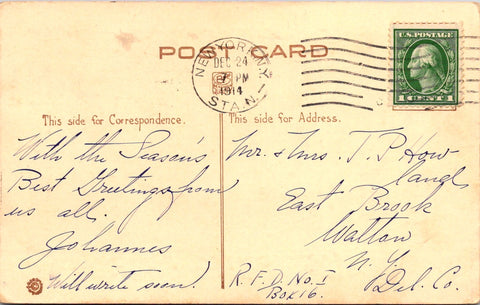 POST CARD
NEW YORK, N.Y.
DEC 24
7 PM
1914
STA. N.
U.S. POSTAGE
1 CENT 1
This side for Correspondence.
This side for Address.
With the Season's
Best Greetings from
us all.
Johannes
Will write soon!
Mr. & Mrs. J. P. How
land
East Brook
Walton
N.Y.
Del. Co.
R.F.D. No. 1
Box 16.